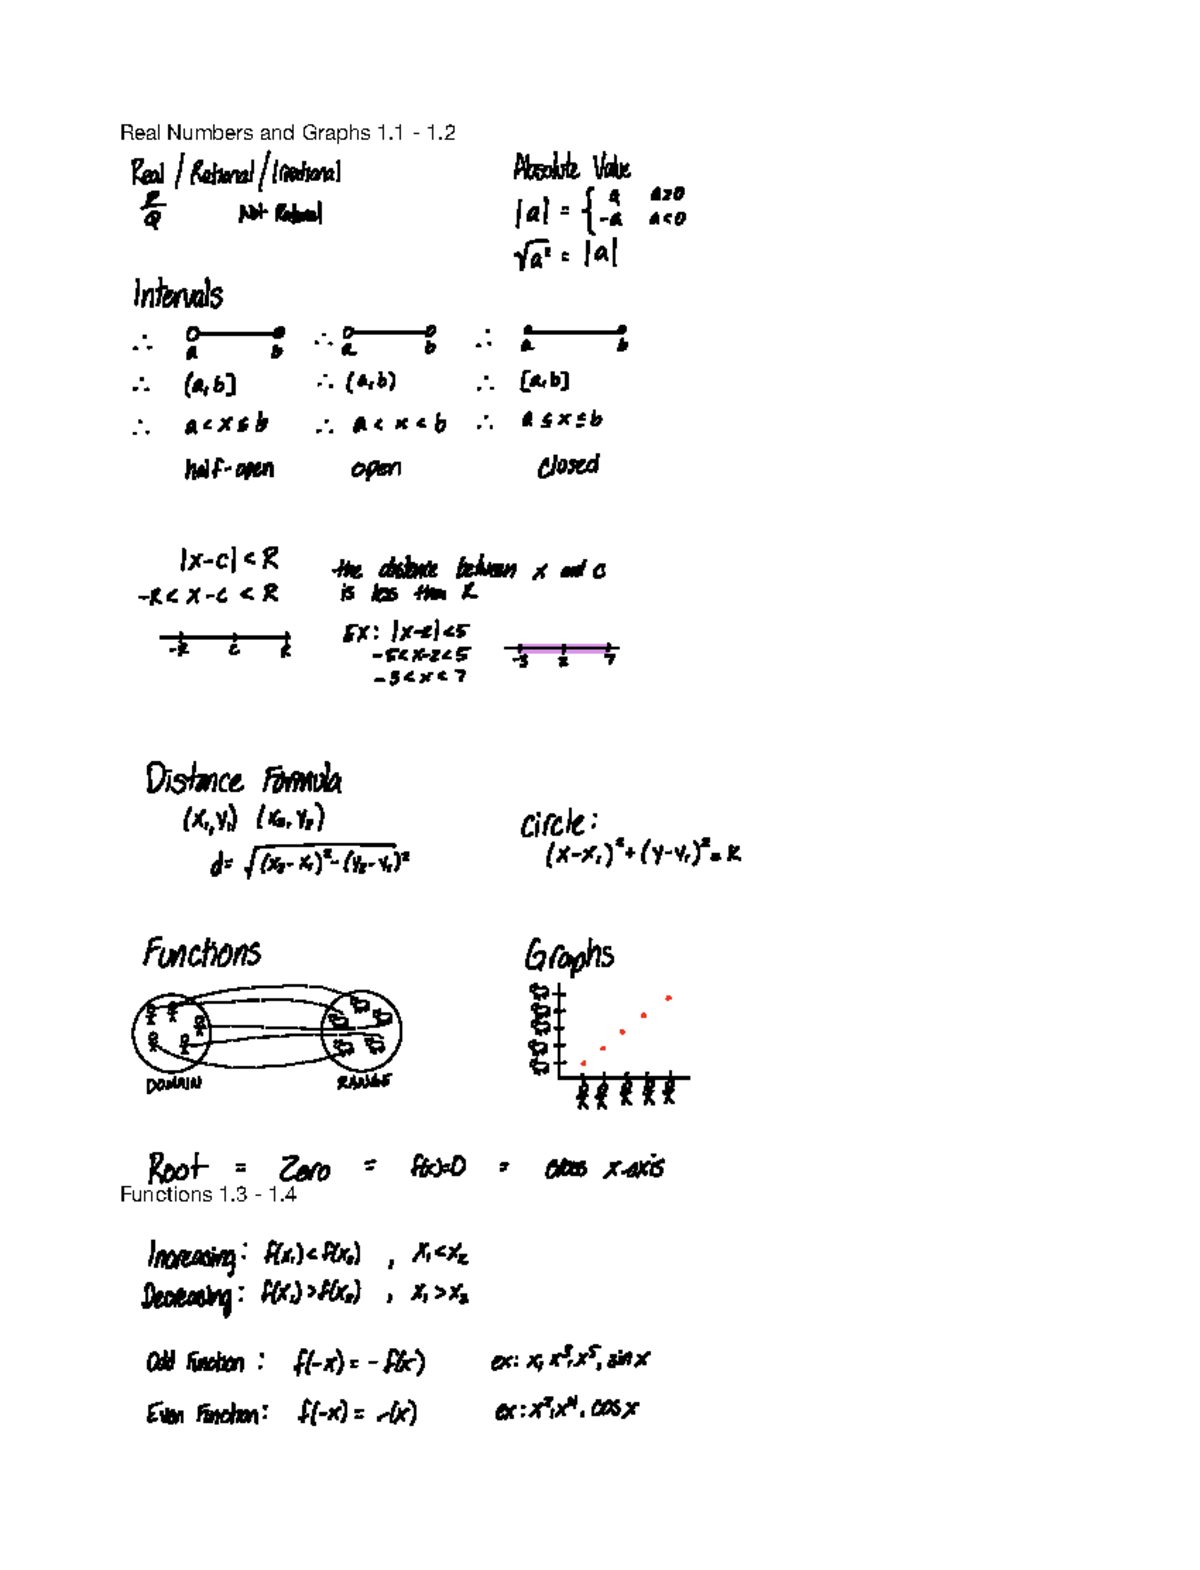 Real Numbers and Graphs 1.1 - 1.2
Real / Rational / Irrational
P/Q Not Rational
Absolute Value
|a| = { a a≥0
-a a<0
√a² = |a|
Intervals
∴ a b ∴ a b ∴ a b
∴ (a,b] ∴ (a,b) ∴ [a,b]
∴ a < x ≤ b ∴ a < x < b ∴ a ≤ x ≤ b
half-open open closed
|x-c| < R
-R < x-c < R
-R c R
the distance between x and c
is less than R
Ex: |x-2|<5
-5<x-2<5
-3<x<7
-3 2 7
Distance Formula
(x₁,y₁) (x₂,y₂)
d= √(x₂-x₁)²-(y₂-y₁)²
circle:
(x-x₁)²+(y-y₁)²=R
Functions
DOMAIN RANGE
Graphs
Root = Zero = f(x)=0 = cross x-axis
Functions 1.3 - 1.4
Increasing: f(x₁)<f(x₂) , x₁<x₂
Decreasing: f(x₁)>f(x₂) , x₁>x₂
Odd Function : f(-x) = -f(x) ex: x, x³, x⁵, sin x
Even Function: f(-x) = f(x) ex: x², x⁴, cos x